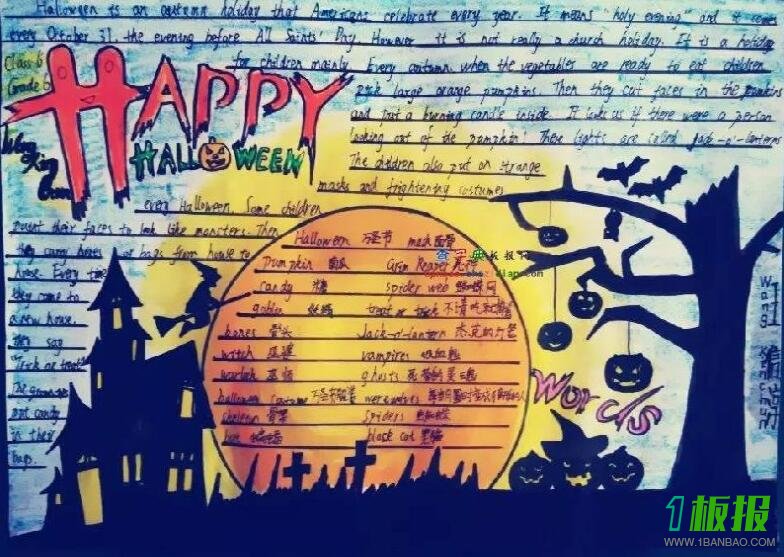 Halloween is an autumn holiday that Americans celebrate every year. It means "holy evening" and it comes
every October 31, the evening before All Saints' Day. However, it is not really a church holiday. It is a holiday
for children mainly. Every autumn, when the vegetables are ready to eat children
pick large orange pumpkins. Then they cut faces in the pumpkins
and put a burning candle inside. It looks as if there were a person
looking out of the pumpkin! These lights are called jack-o'-lanterns
The children also put on strange
masks and frightening costumes
every Halloween. Some children
paint their faces to look like monsters. Then
they carry boxes or bags from house to
house. Every time
they come to
a new house,
they say
Trick or treat!
The grownups
put candy
in their
bags.
Class 6
Grade 6
HAPPY
HALLOWEEN
Halloween 万圣节 mask 面具
pumpkin 南瓜 Grim Reaper 死神
candy 糖 spider web 蜘蛛网
goblin 妖精 treat or trick 不请吃就捣蛋
bones 骨头 Jack-o'-lantern 杰克的灯笼
witch 巫婆 vampires 吸血鬼
warlock 巫师 ghosts
halloween costume 万圣节服装 werewolves
skeleton 骨架 spiders 蜘蛛
bat 蝙蝠 black cat 黑猫
Words
Wang
1板报
WWW.1BANBAO.COM